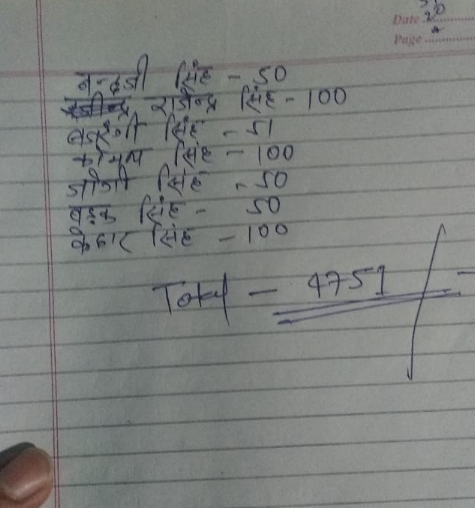 Date 20
Page
चन्द्रजी सिंह - 50
राजेन्द्र सिंह - 100
बजरंगी सिंह - 51
कोमल सिंह - 100
जोगी सिंह - 50
सिंह - 50
केदार सिंह - 100
Total - 4751